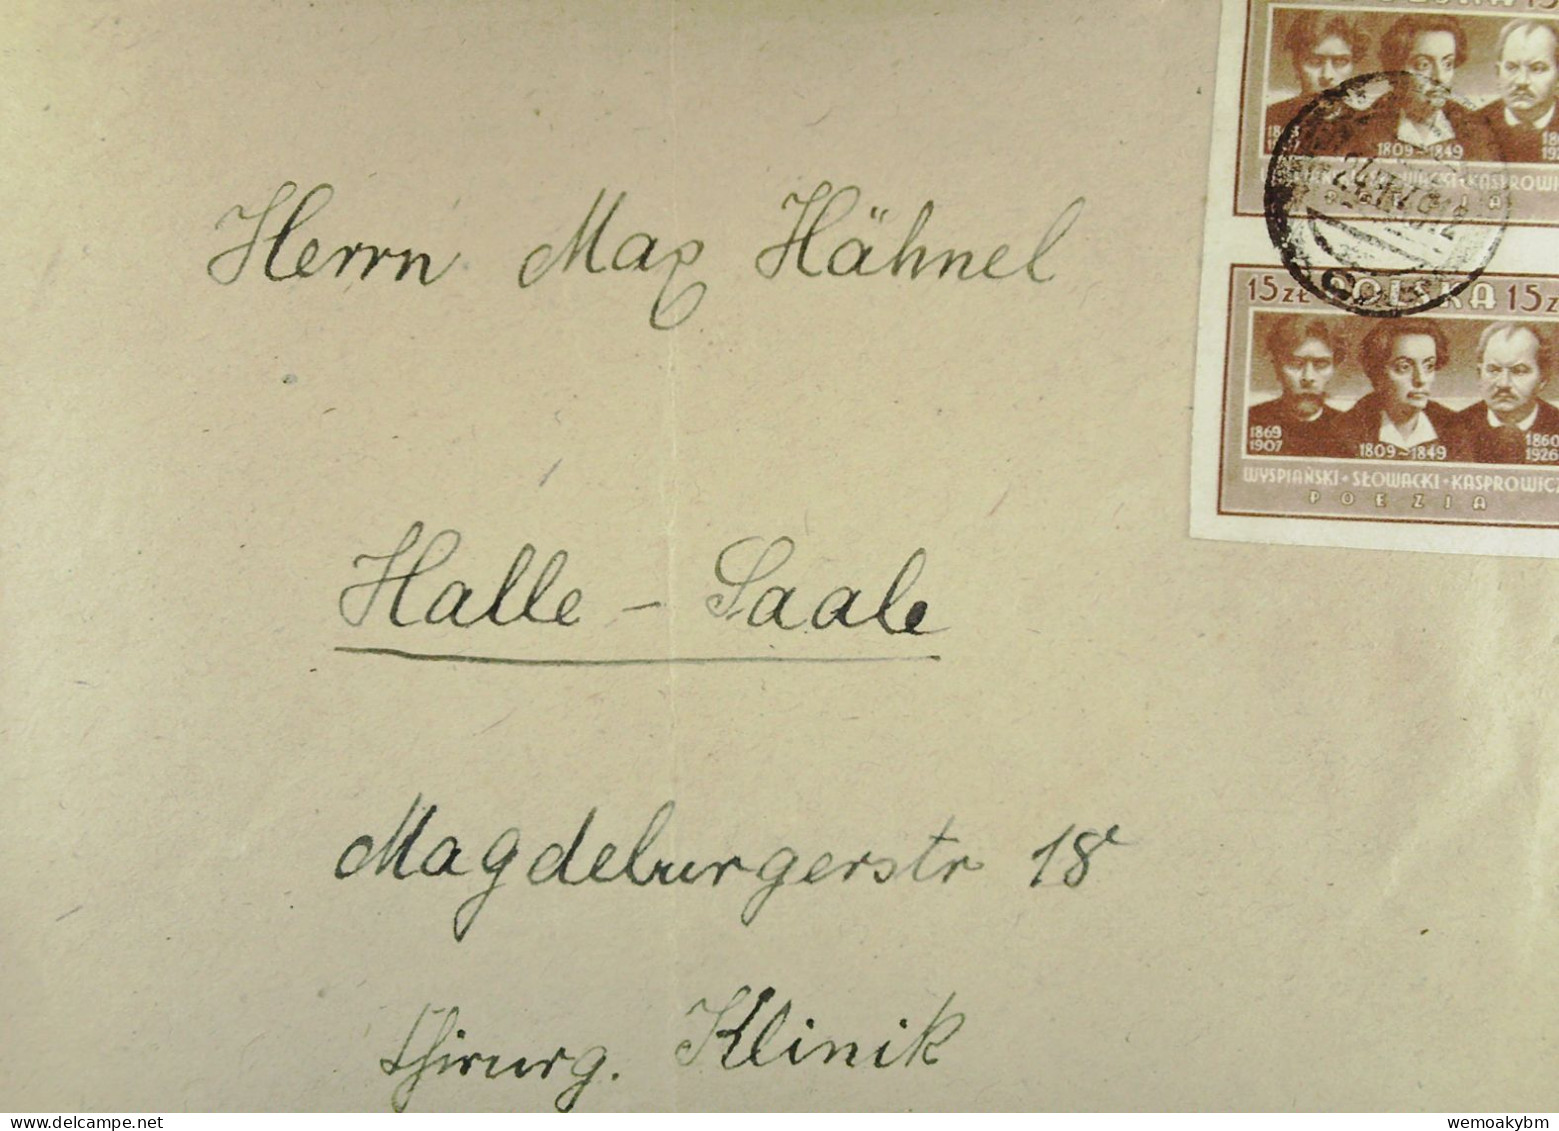 POLSKA 15
1809-1849
SŁOWACKI · KASPROWICZ
POEZIA
15 ZŁ POLSKA 15 Z
1869 1907
1809-1849
1860 1926
WYSPIAŃSKI · SŁOWACKI · KASPROWICZ
POEZIA
Herrn Max Hähnel
Halle - Saale
Magdeburgerstr 18
Chirurg. Klinik
wemoakybm